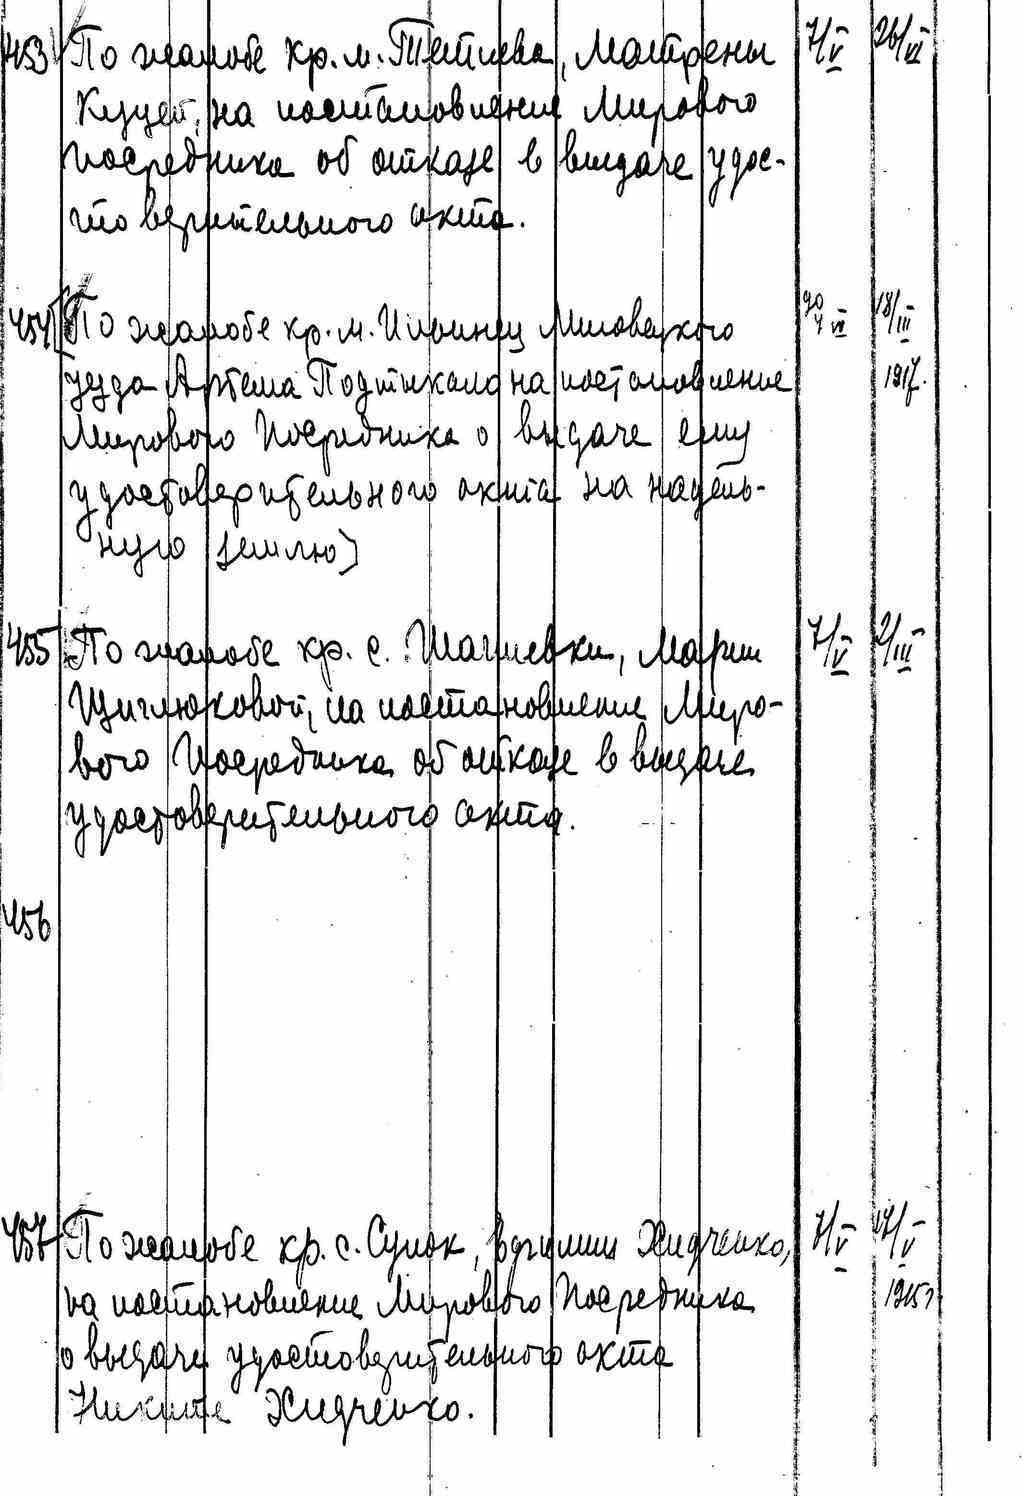 453 По жалобе кр. м. Тетиева, Матрены 7/V 26/VI
Куцей, на постановление Мирового
посредника об отказе в выдаче удос-
товерительного акта.
454 По жалобе кр. м. Ильинец Липовецкого 18/III
уезда Артема Подтыкало на постановление 1917.
Мирового Посредника о выдаче ему
удостоверительного акта на надель-
ную землю)
455 По жалобе кр. с. Шагиевки, Марии 7/V 2/III
на постановление Миро-
вого Посредника об отказе в выдаче
удостоверительного акта.
456
457 По жалобе кр. с. Сулок, Хидченко, 7/V 17/V
на постановление Мирового Посредника 1915г
о выдаче удостоверительного акта
Никите Хидченко.